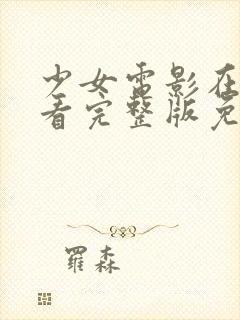 少女雷影在
看完整版免
羅森